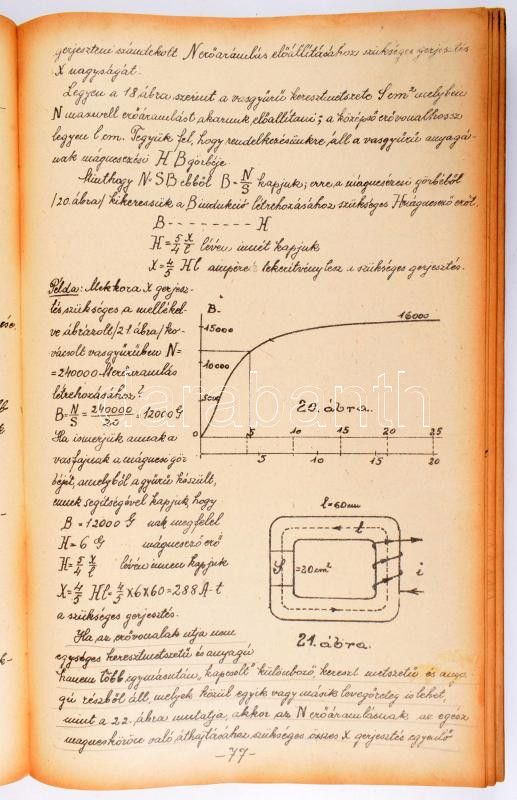 gerjeszteni szándékolt N erőáramlás előállításához szükséges gerjesztés
X nagyságát.
Legyen a 18. ábra szerint a vasgyűrű keresztmetszete S cm² melyben
N maxwell erőáramlást akarunk előállítani; a középső erővonalhossz
legyen l cm. Tegyük fel, hogy rendelkezésünkre áll a vasgyűrű anyagá-
nak mágnesezési H B görbéje.
Minthogy N=SB ebből B=N/S kapjuk; erre a mágnesezési görbéből
/20. ábra/ kikeressük a B indukció létrehozásához szükséges H mágnesező erőt.
B - - - - - - - - H
H = 5/4 X/l lévén innét kapjuk
X = 4/5 Hl ampère tekercsítvény lesz a szükséges gerjesztés.
Példa: Mekkora X gerjesz-
tés szükséges a mellékel-
ve ábrázolt /21 ábra/ ko-
vácsolt vasgyűrűben N=
=240000 N erőáramlás
létrehozásához?
B=N/S=240000/20=12000 G
Ha ismerjük annak a
vasfajnak a mágnesi gör-
béjét, amelyből a gyűrű készült,
ennek segítségével kapjuk, hogy
B = 12000 G nak megfelel
H = 6 G mágnesező erő
H = 5/4 X/l lévén innen kapjuk
X = 4/5 Hl = 4/5 × 6 × 60 = 288 A-t
a szükséges gerjesztés.
B
15000
10000
5000
0
16000
20. ábra.
5 10 15 20 25
5 15 20
l=60cm
l
S =20cm²
i
21. ábra.
Ha az erővonalak útja nem
egységes keresztmetszetű és anyagú
hanem több egymásután "kapcsolt" különböző, keresztmetszetű és anya-
gú részből áll, melyek közül egyik vagy másik levegőréteg is lehet,
mint a 22. ábra mutatja, akkor az N erőáramlásnak az egész
mágneskörön való áthajtásához szükséges összes X gerjesztés egyenlő
-77-
darabanth